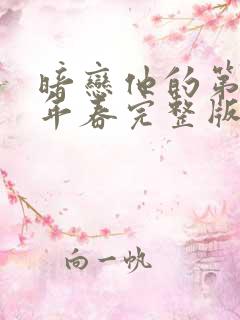 暗戀他的第
年春完整版
向一帆